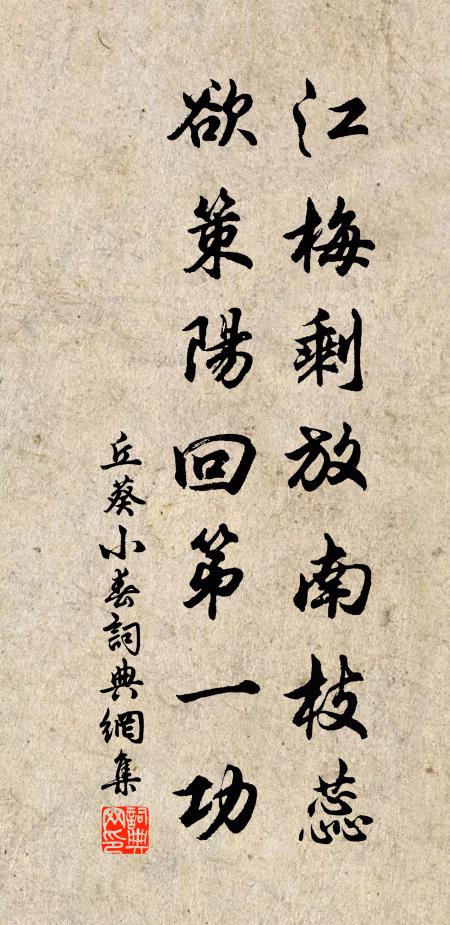 江梅剩放南枝蕊
欲策陽回第一功
丘葵小春詞典網集
詞典網印